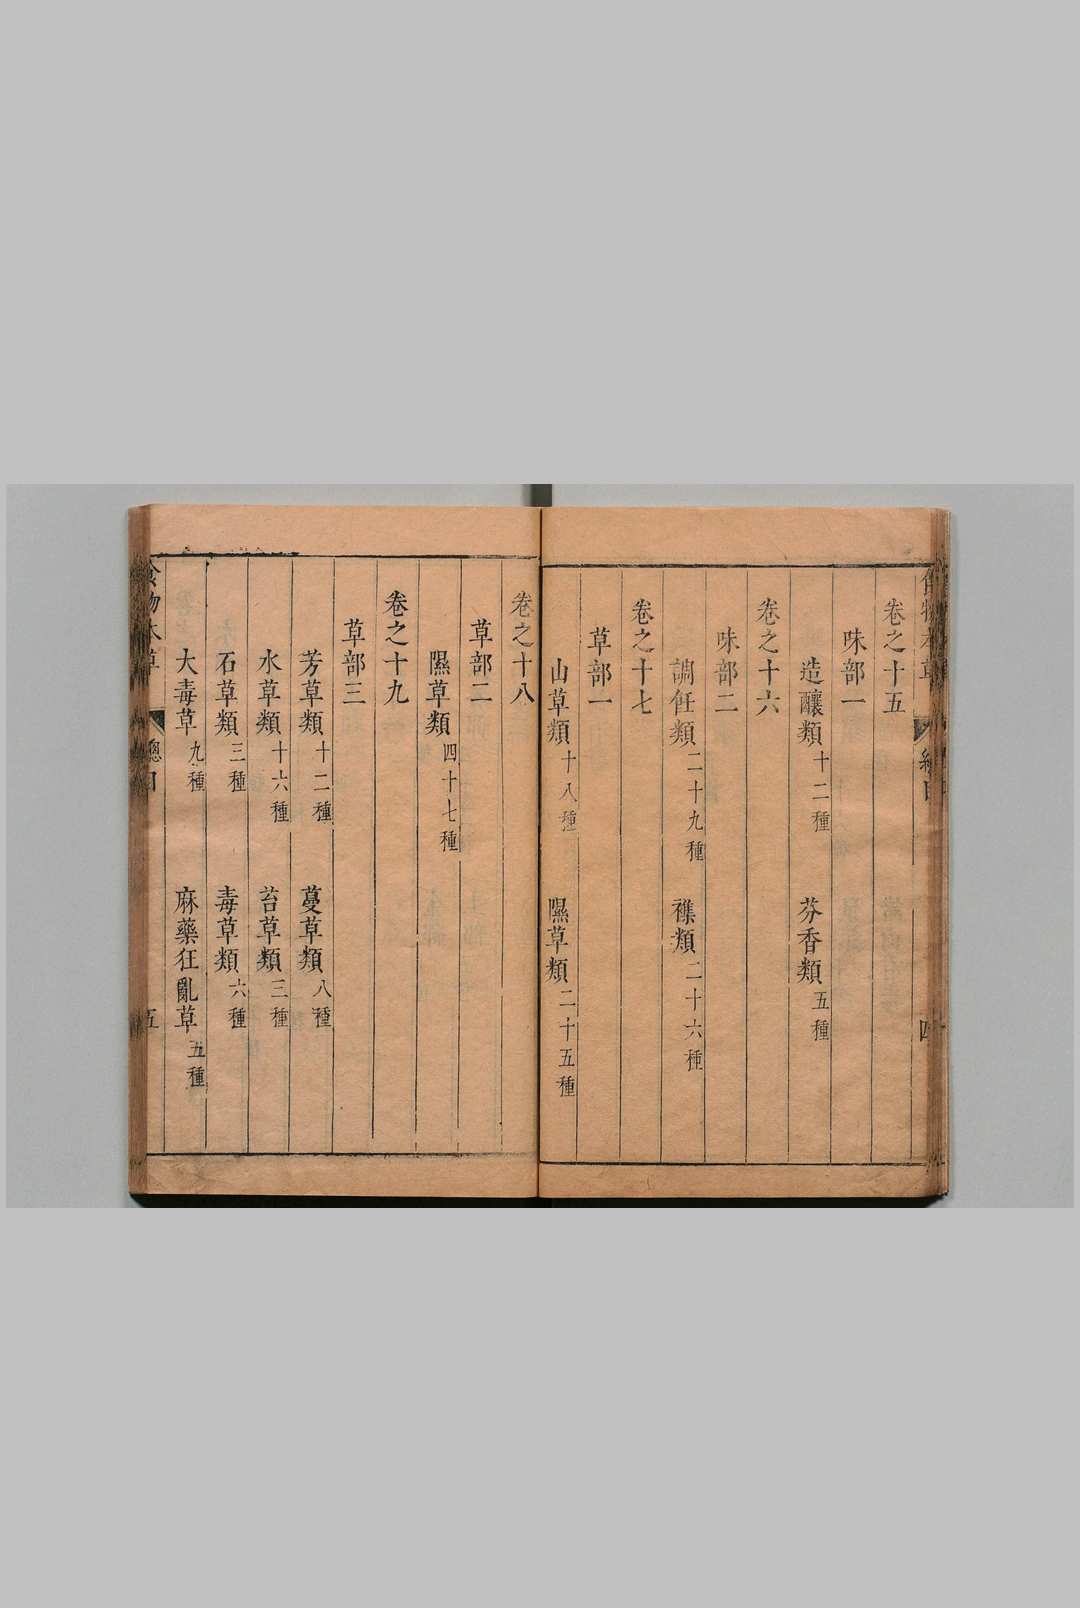 卷之十五
味部一
造釀類十二種 芬香類五種
卷之十六
味部二
調飪類二十九種 襍類二十六種
卷之十七
草部一
山草類十八種 隰草類二十五種
卷之十八
草部二
隰草類四十七種
卷之十九
草部三
芳草類十二種 蔓草類八種
水草類十六種 苔草類三種
石草類三種 毒草類六種
大毒草九種 麻藥狂亂草五種
食物本草 總目 五